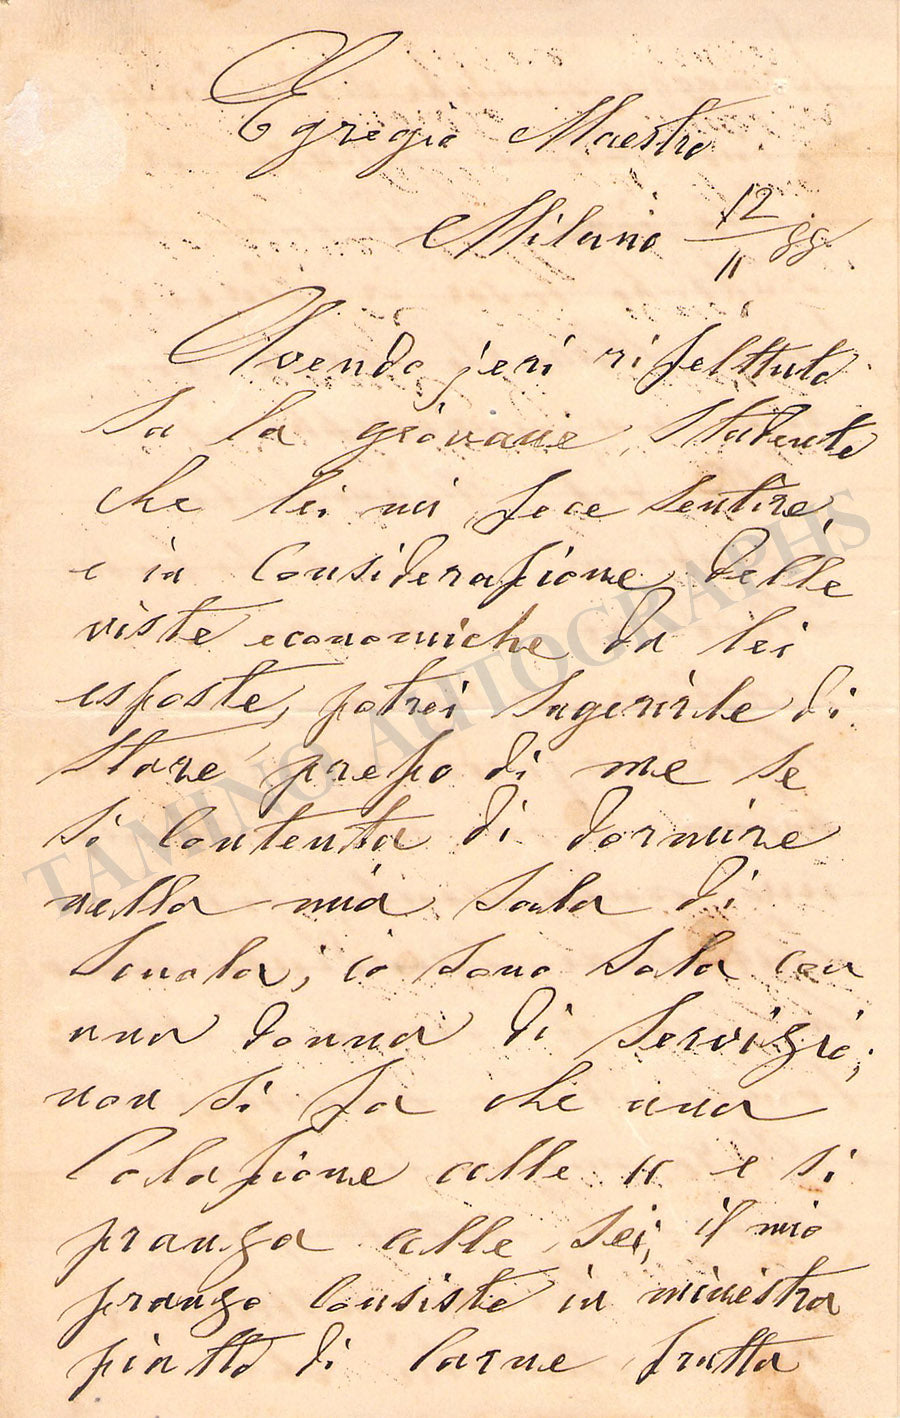 Egregio Maestro
Milano 12/11 88
Avendo jeri rifelttuto
su la giovane studente
che lei mi fece sentire,
e in Considerazione delle
viste economiche da lei
esposte, potrei sugerirle di
stare presso di me se
si Contenta di dormire
nella mia sala di
Scuola; io sono sola con
una donna di servizio;
non si fa che una
Colazione alle 11 e si
pranza alle sei, il mio
pranzo Consiste in minestra
piatto di Carne frutta
TAMINO AUTOGRAPHS